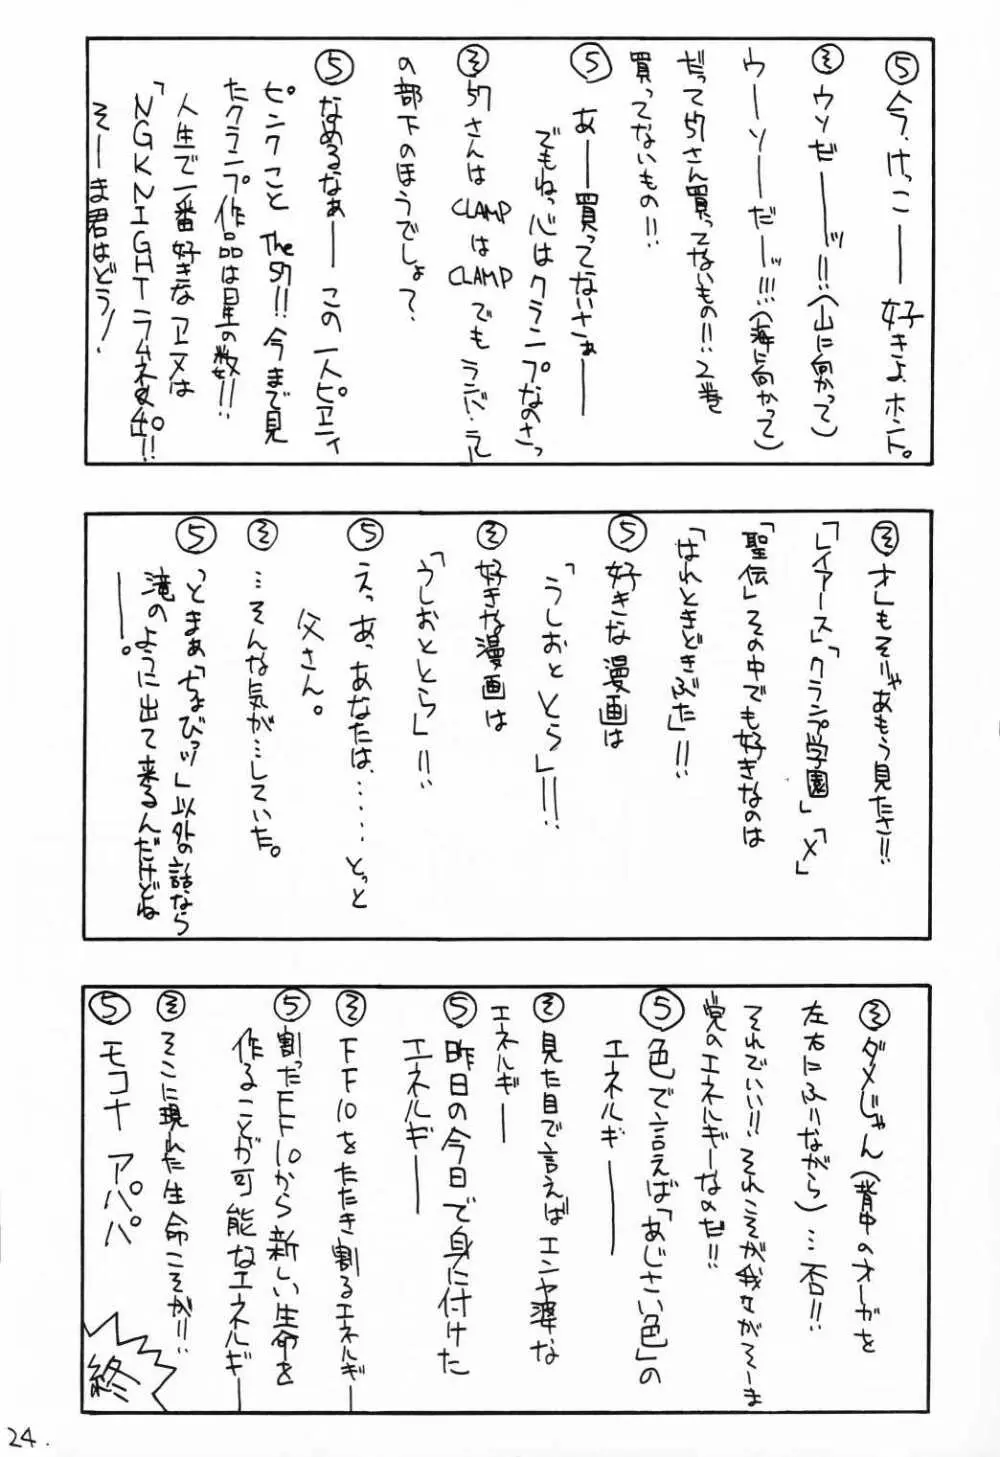 ⑤今、けっこ――好きよ、ホント。
㋞ウソゼ――ッ!!(山に向かって)
ウーソーだーッ!!!(海に向かって)
だって57さん買ってないもの!!:2巻
買ってないもの!!
⑤あ――買ってないさぁ――
でもねっ心はクランプなのさっ
㋞57さんはCLAMPはCLAMPでもランバ・ラル
の部下のほうでしょ?
⑤なめるなぁ――この一人ピエニィ
ピンクことThe57!!今まで見
たクランプ作品は星の数!!
人生で一番好きなアニメは
「NGKNIGHTラムネ&炎!!
そーま君はどう!
㋞オレもそりゃあもう見たさ!!
「レイアース」「クランプ学園」「X」
「聖伝」その中でも好きなのは
「はれときどきぶた」!!
⑤好きな漫画は
「うしおととら」!!!
㋞好きな漫画は
「うしおととら」!!
⑤えっあっあなたは……とっと
父さん。
㋞…そんな気が…していた。
⑤っとまぁ「ちょびっツ」以外の話なら
滝のように出て来るんだけどね
――。
㋞ダメじゃん(背中のオーガを
左右にふりながら)…否!!
それでいい!!それこそが我々がそーま
党のエネルギーなのだ!!
⑤色で言えば「あじさい色」の
エネルギー――
㋞見た目で言えばエンヤ婆な
エネルギー――
⑤昨日の今日で身に付けた
エネルギー――
㋞FF10をたたき割るエネルギー――
⑤割ったFF10から新しい生命を
作ることが可能なエネルギー――
㋞そこに現れた生命こそが!!
⑤モコナ アパパ
終
24.